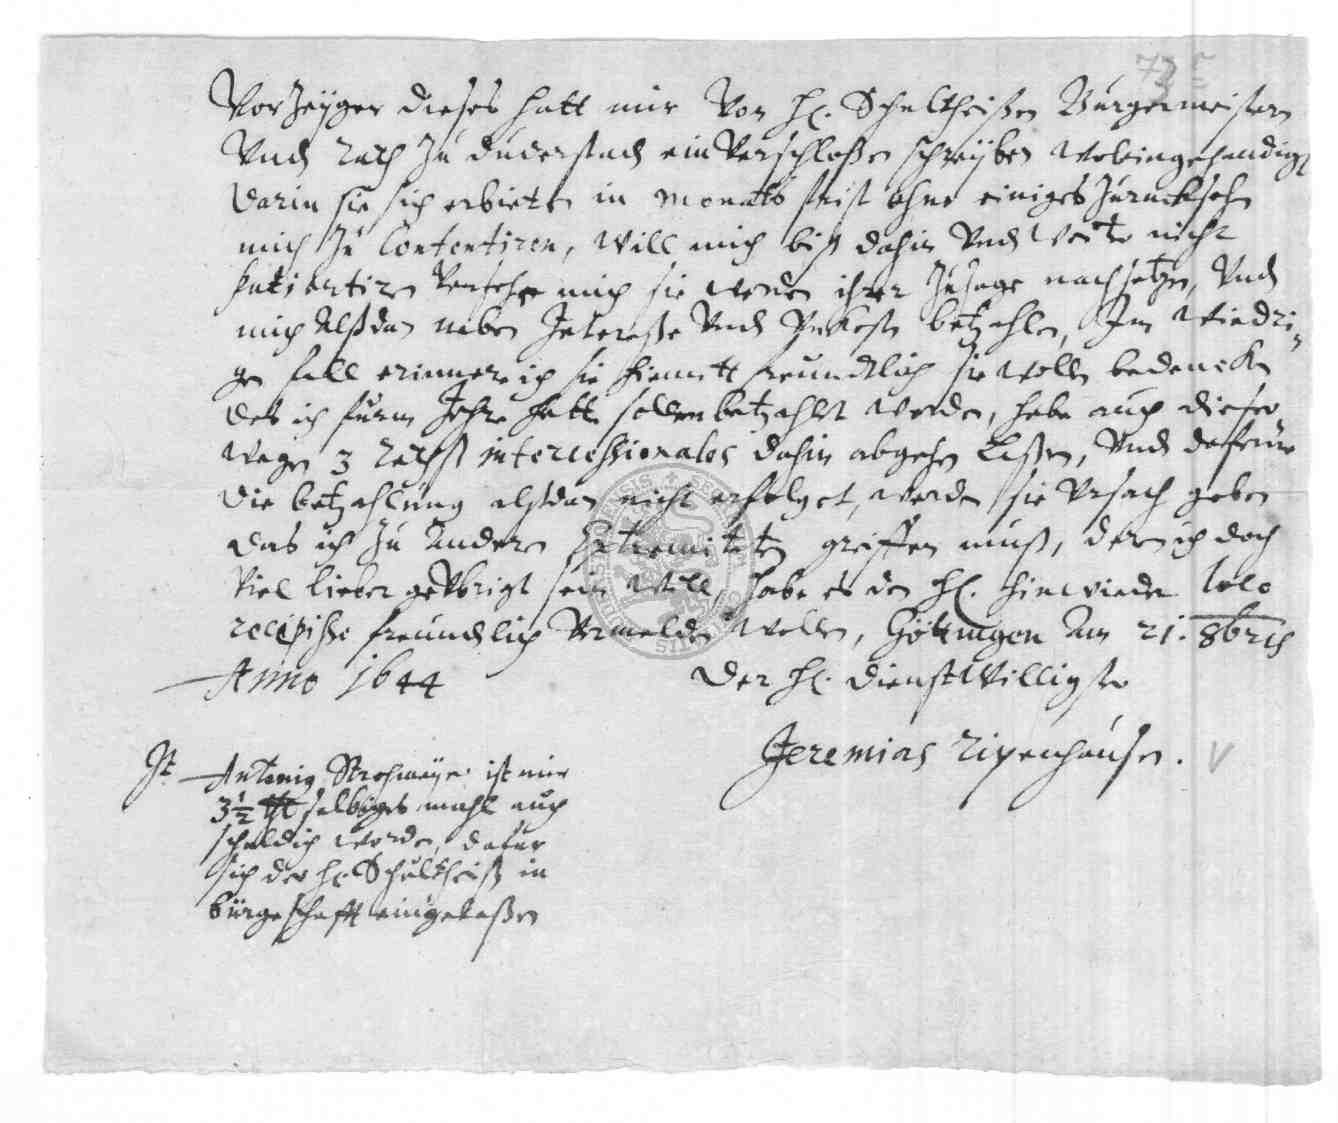 73r
Vorzeyger dieses hatt mir Von H. Schultheißen Bürgermeistern
Vndt rath Zu duderstadt ein Verschloßen schreyben wol eingehandigt
darin sie sich erbieten in monats frist ohne einiges Zurucksehn
mich Zu Contentiren, Will mich biß dahin Vndt weiter nicht
patientiren Versehe mich sie werden ihrer Zusage nachsetzen, Vndt
mich alßdan neben Interesse Vndt Vnkosten betzahlen, Im Wiedri-
gen fall erinnere ich sie hiemitt freundtlich sie wollen bedencken
das ich furm Jahre hatte sollen betzahlt werden, habe auch dieser
wegen 3 intercessionales dahin abgehen laßen, Vndt dafern
die betzahlung alßdan nicht erfolget, werden sie Vrsach geben
das ich Zu andern Extremiteten greiffen muß, deren ich doch
Viel lieber geVbrigt sein will, habe es den H. hinwieder loco
recepisse freundtlich Vermelden wollen, Göttingen am 21. 8bris
Anno 1644
Der H. dienstwilligster
Jeremias Ripenhausen.
Antonig Strohmeyer ist mir
3½ selbiges mahl auch
schuldich worden, dafur
sich der H. Schultheiß in
bürgeschafft eingelaßen